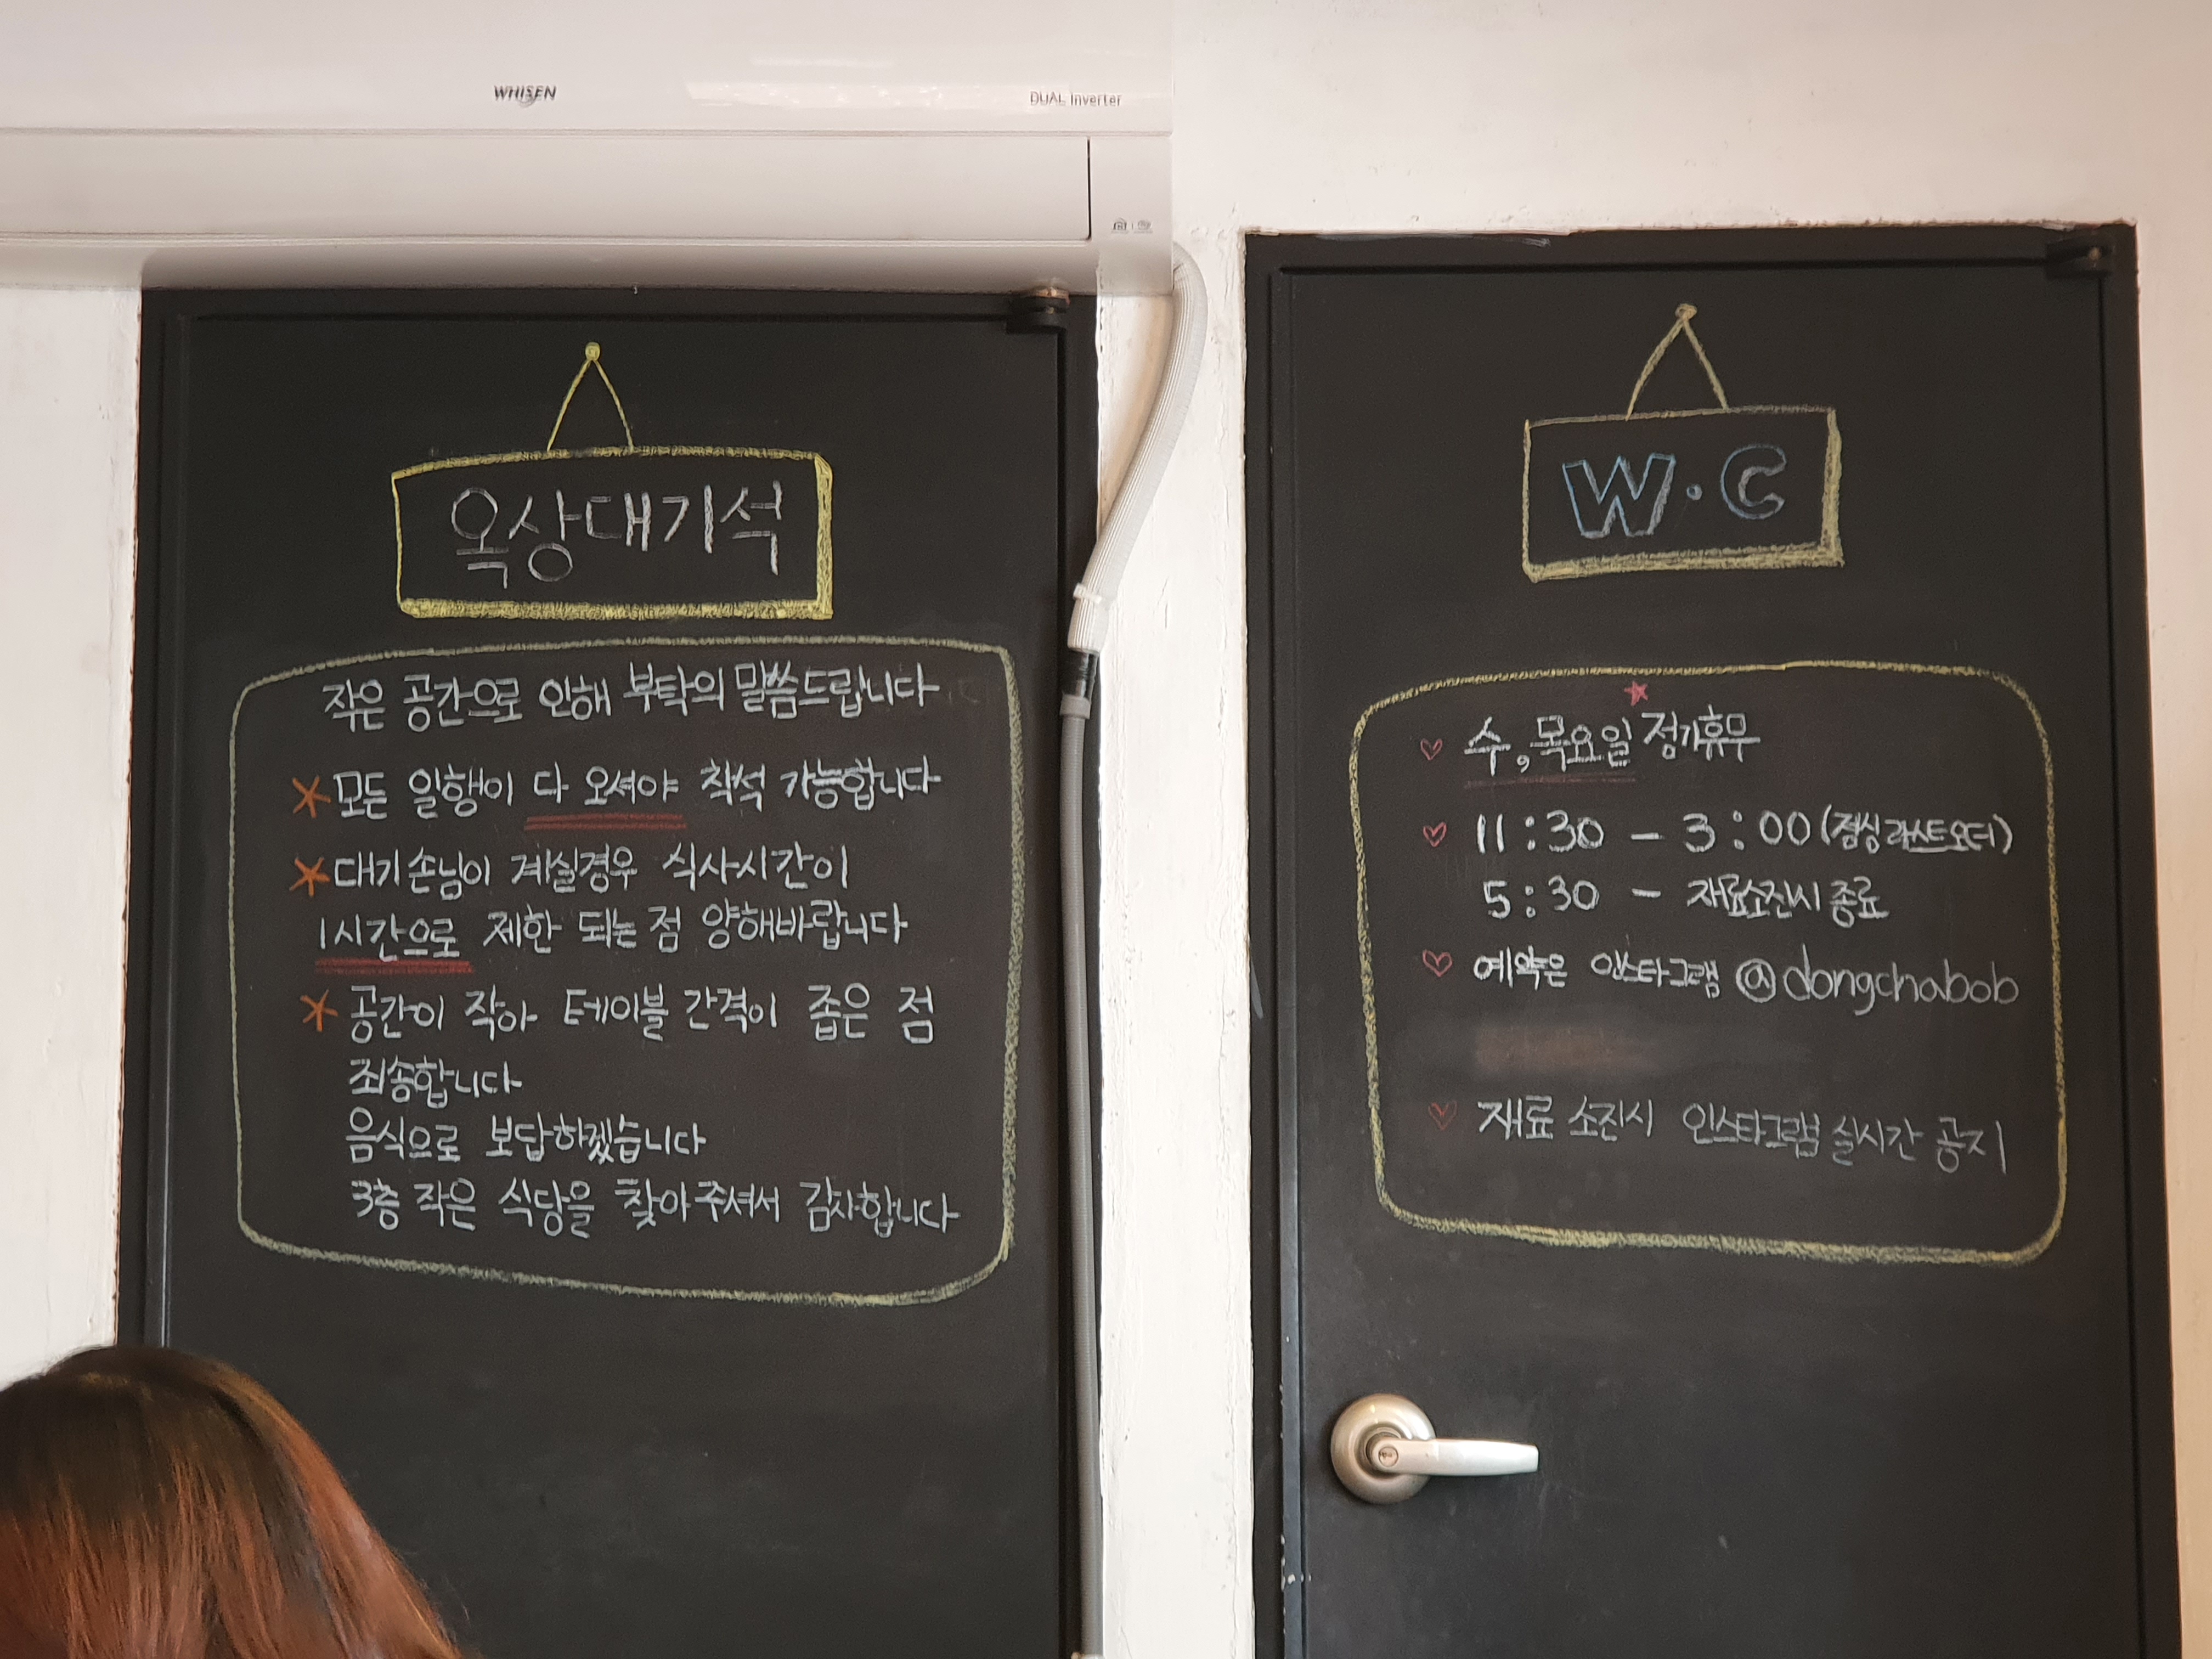 WHISEN
DUAL Inverter
옥상대기석
작은 공간으로 인해 부탁의 말씀드립니다
모든 일행이 다 오셔야 착석 가능합니다
대기손님이 계실경우 식사시간이
1시간으로 제한 되는 점 양해바랍니다
공간이 작아 테이블 간격이 좁은 점
죄송합니다
음식으로 보답하겠습니다
3층 작은 식당을 찾아주셔서 감사합니다
W·C
수, 목요일 정기휴무
11:30 - 3:00 (점심라스트오더)
5:30 - 재료소진시 종료
예약은 인스타그램 @dongchabob
재료 소진시 인스타그램 실시간 공지